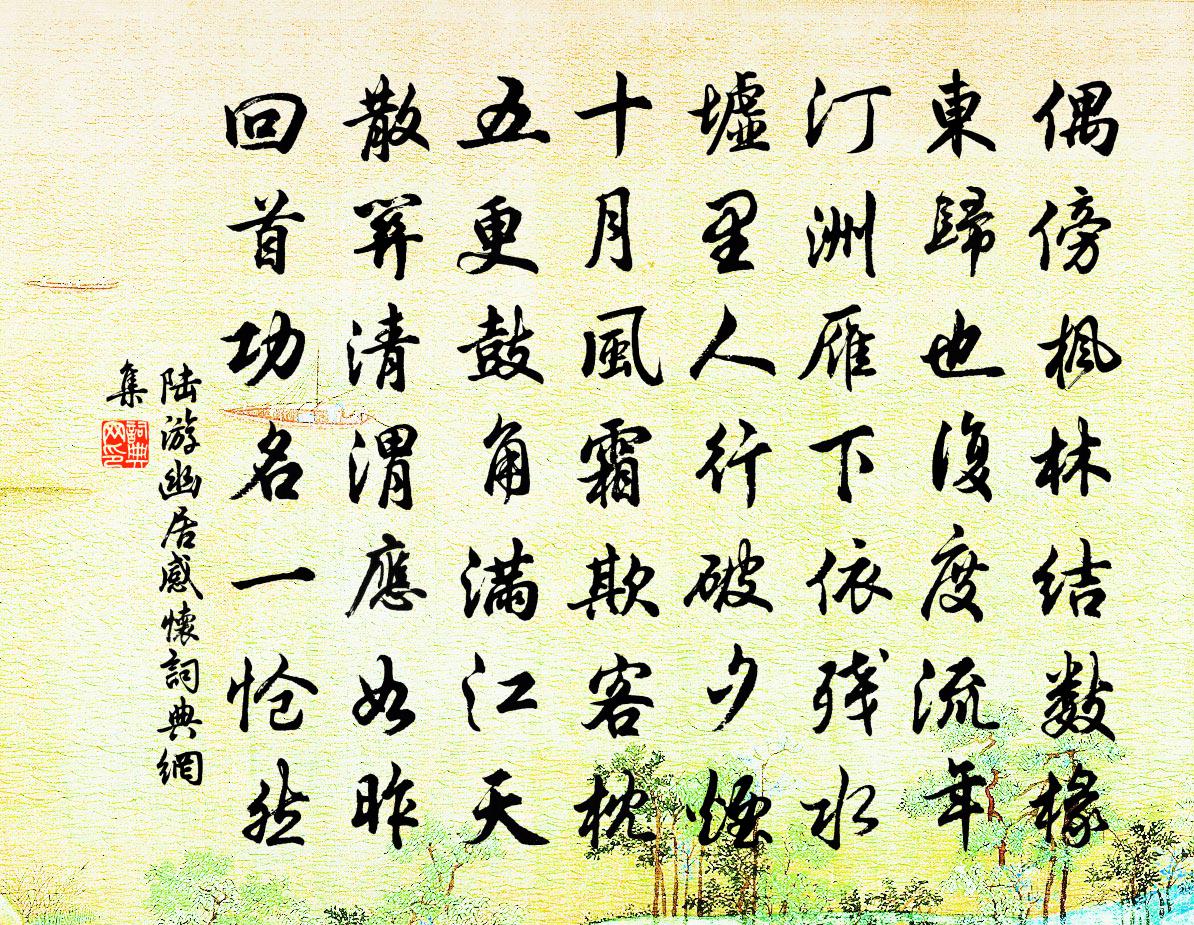 偶傍楓林結數椽
東歸也復度流年
汀洲雁下依殘水
墟里人行破夕煙
十月風霜欺客枕
五更鼓角滿江天
散關清渭應如昨
回首功名一愴然
陸游幽居感懷詞典網
集
詞典
网印